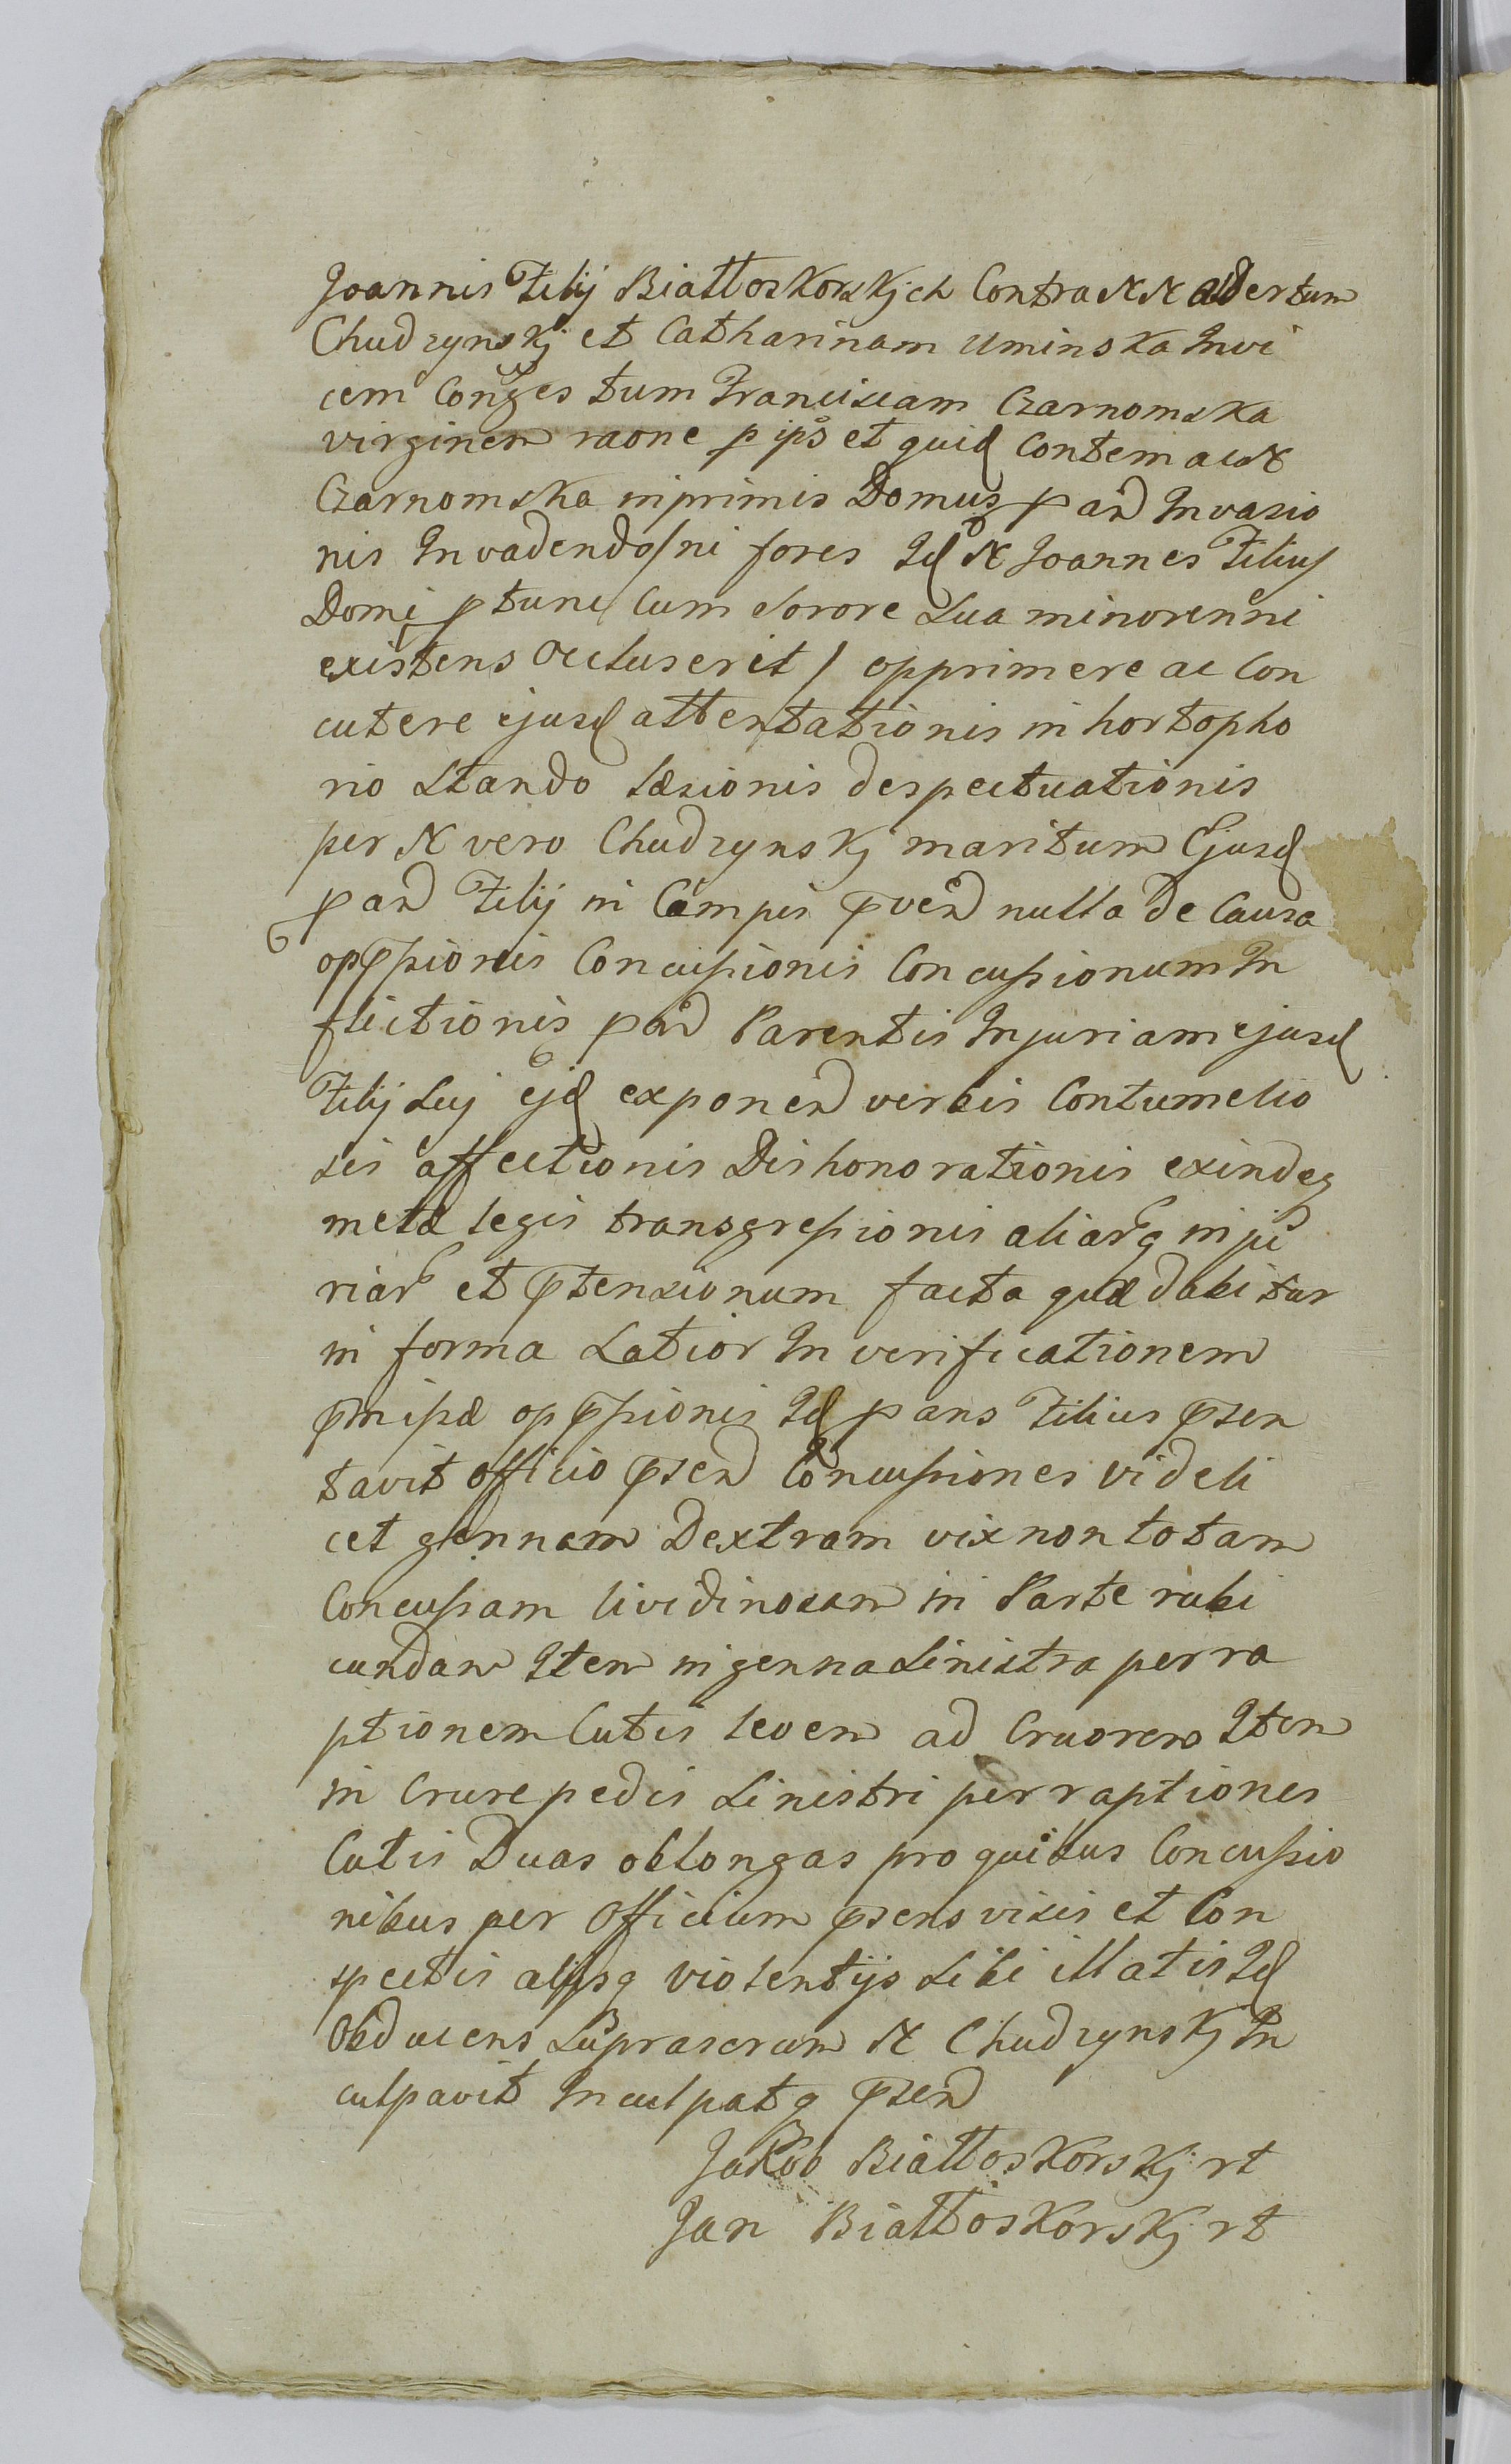 Joannis Filij Białłoskorskich Contra NN Adalbertum
Chudzynskj et Catharinam Uminska Invi
cem Conges tum Franciscam Czarnomska
virginem raone p ips et quid Contem ac N
Czarnomska inprimis Domus pand Invasio
nis Invadendo /ni fores Id N Joannes Filius
Domi ptunc Cum Sorore Sua minorenni
existens Occluserit / opprimere ac Con
cutere ejusd attentationis in hortopho
rio Stando læsionis despectuationis
per N vero Chudzynskj maritum Ejusd
pand Filij in Campis nulla de Causa
oppssionis Concussionis Concussionum In
flictionis pand Parentis Injuriam ejusd
Filij Sui ejd exponend verbis Contumelio
sis affectionis Dishonorationis exindeq
metæ legis transgressionis aliarq inju
riar et ptensionum facta quæ dabitur
in forma Latior In verificationem
pmissæ oppssionis Id pans Filius psen
tavit officio psend Concussiones videli
cet gennam Dextram vix non totam
Concussam lividinosam in Parte rubi
cundam Item in genna Sinistra perra
ptionem Cutis levem ad Cruorem Item
in Crure pedis Sinistri perraptiones
Cutis Duas oblongas pro quibus Concussio
nibus per Officium psens visis et Con
spectis alijsq violentijs Sibi illatis Id
Obducens Suprascrum N Chudzynskj In
culpavit Inculpatq psend
Jakob Białłoskorskj rt
Jan Białłoskorskj rt